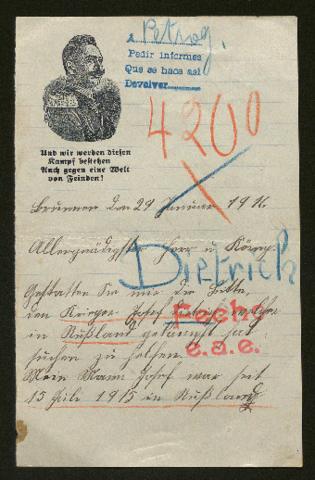 A Petrog.
Pedir informes
Que se haga asi
Devolver
4200
Und wir werden diesen
Kampf bestehen
Auch gegen eine Welt
von Feinden!
Brunnen den 29 Januar 1916
Allergnädigster Herr u. König.
Dietrich
Gestatten Sie mir die Bitte,
den Krieger Josef welcher
in Rußland
Fecho
suchen zu helfen.
e.a.e.
Mein Mann Josef war seit
15 Juli 1915 in Rußland